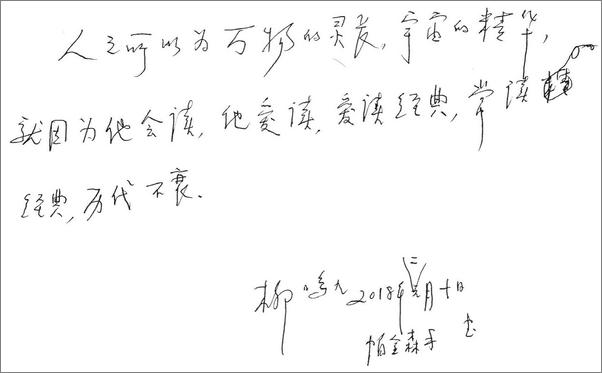 人之所以为万物的灵长，宇宙的精华，
就因为他会读，他爱读，爱读经典，常读
经典，历代不衰．
柳鸣九 2018年二月十日
帕金森手 书